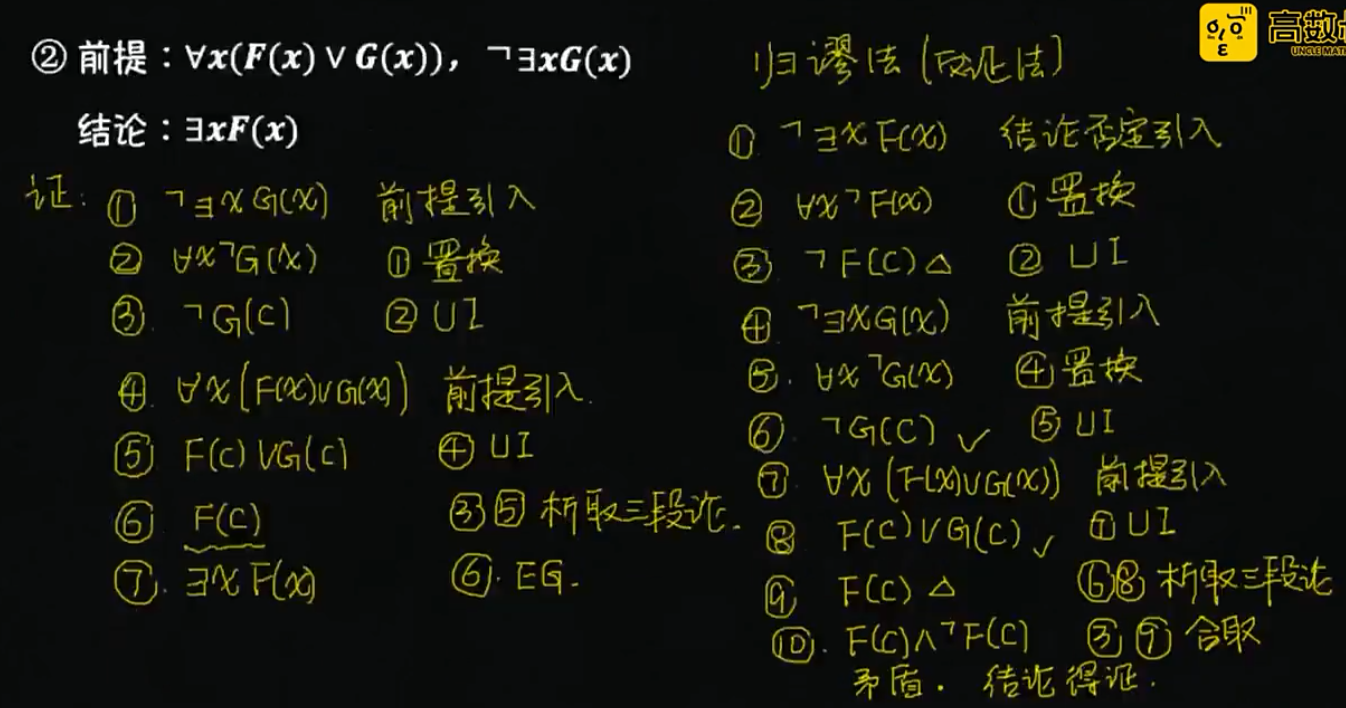 ② 前提：∀x(F(x) ∨ G(x))，¬∃xG(x)
结论：∃xF(x)
证: ① ¬∃xG(x) 前提引入
② ∀x¬G(x) ①置换
③. ¬G(c) ②UI
④. ∀x(F(x)∨G(x)) 前提引入.
⑤ F(c)∨G(c) ④UI
⑥ F(c) ③⑤析取三段论.
⑦. ∃xF(x) ⑥. EG.
归谬法(反证法)
①. ¬∃xF(x) 结论否定引入
② ∀x¬F(x) ①置换
③ ¬F(c)△ ② UI
④ ¬∃xG(x) 前提引入
⑤. ∀x¬G(x) ④置换
⑥. ¬G(c) ✓ ⑤UI
⑦. ∀x(F(x)∨G(x)) 前提引入
⑧ F(c)∨G(c) ✓ ⑦UI
⑨ F(c) △ ⑥⑧析取三段论
⑩. F(c)∧¬F(c) ③⑨合取
矛盾. 结论得证.
高数
UNCLE MAT